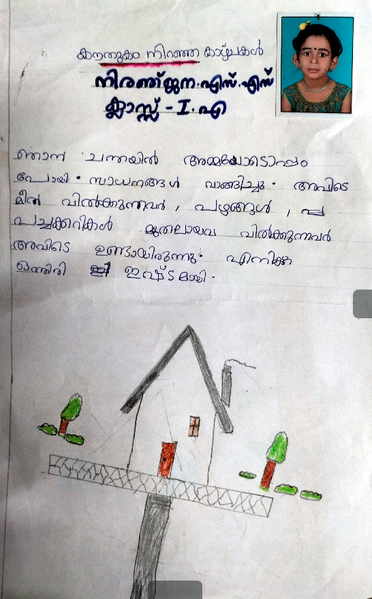 കൗതുകം നിറഞ്ഞ കാഴ്ചകൾ
നിരഞ്ജന.എസ്.എസ്
ക്ലാസ്സ് - I.എ
ഞാൻ ചന്തയിൽ അമ്മയോടൊപ്പം
പോയി. സാധനങ്ങൾ വാങ്ങിച്ചു. അവിടെ
മീൻ വിൽക്കുന്നവർ, പഴങ്ങൾ,
പച്ചക്കറികൾ മുതലായവ വിൽക്കുന്നവർ
അവിടെ ഉണ്ടായിരുന്നു. എനിക്ക
ഒത്തിരി ഇഷ്ടമായി.